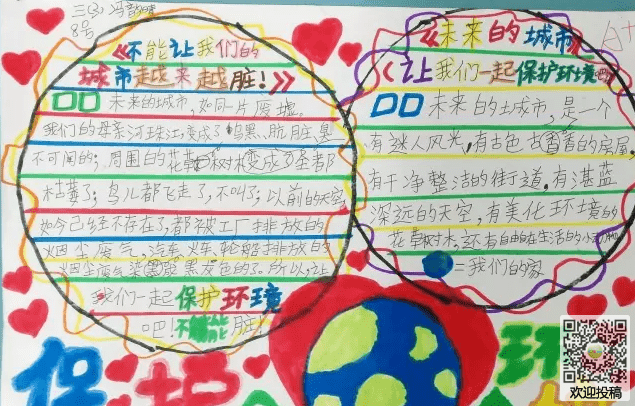 三(3) 冯
8号
《不能让我们的
城市越来越脏！》
未来的城市，如同一片废墟。
我们的母亲河珠江，变成了乌黑、肮脏、臭
不可闻的；周围的花草树木变成了至者都
枯萎了；鸟儿都飞走了，不叫了；以前的天空
如今已经不存在了，都被工厂排放的
烟尘废气，汽车、火车、轮船排放的
烟尘废气染黑发色的了。所以，让
我们一起保护环境
吧！不能脏！
《未来的城市》
(让我们一起保护环境吧
未来的城市，是一个
有迷人风光，有古色古香的房屋，
有干净整洁的街道，有湛蓝
深远的天空，有美化环境的
花草树木，还有自由自在生活的小动物
=我们的家
A+
保护环
欢迎投稿